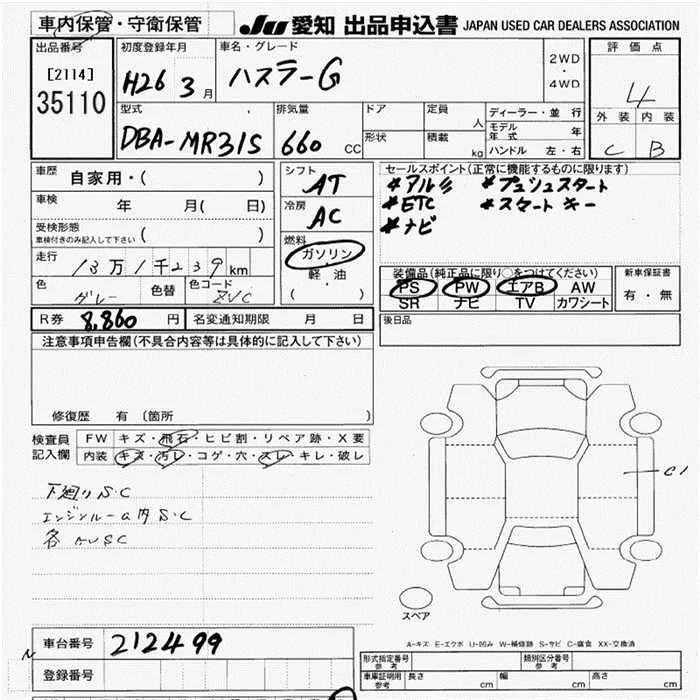 車内保管・守衛保管 JU 愛知 出品申込書 JAPAN USED CAR DEALERS ASSOCIATION
出品番号 初度登録年月 車名・グレード 評価点
[2114]
35110
H26 3月 ハスラーG 2WD・4WD 4
型式 排気量 ドア 定員 人 ディーラー・並行 外装 内装
モデル年式 年
DBA-MR31S 660CC 形状 積載 kg ハンドル 左・右 C B
車歴 自家用・( ) シフト AT セールスポイント(正常に機能するものに限ります)
*アルミ *プッシュスタート
車検 年 月( 日) 冷房 AC *ETC *スマートキー
*ナビ
受検形態
車検付きのみ記入して下さい ( ) 燃料 ガソリン
走行 13万1千239km 軽・油 装備品(純正品に限り○をつけてください) 新車保証書
色 グレー 色替 色コード ZVC ( ・ ) PS PW エアB AW 有・無
SR ナビ TV カワシート
R券 8,860円 名変通知期限 月 日 後日品
注意事項申告欄(不具合内容等は具体的に記入して下さい)
修復歴 有 〔箇所 〕
検査員 FW キズ・飛石・ヒビ割・リペア跡・X要
記入欄 内装 キズ・汚レ・コゲ・穴・スレ・キレ・破レ
C1
下廻りS.C
エンジンルーム内S.C
スペア
A-キズ E-エクボ U-凹み W-補修跡 S-サビ C-腐食 XX-交換済
車台番号 212499
登録番号
形式指定番号 参考 類別区分番号 参考
車庫証明用 参考 長さ cm 幅 cm 高さ cm